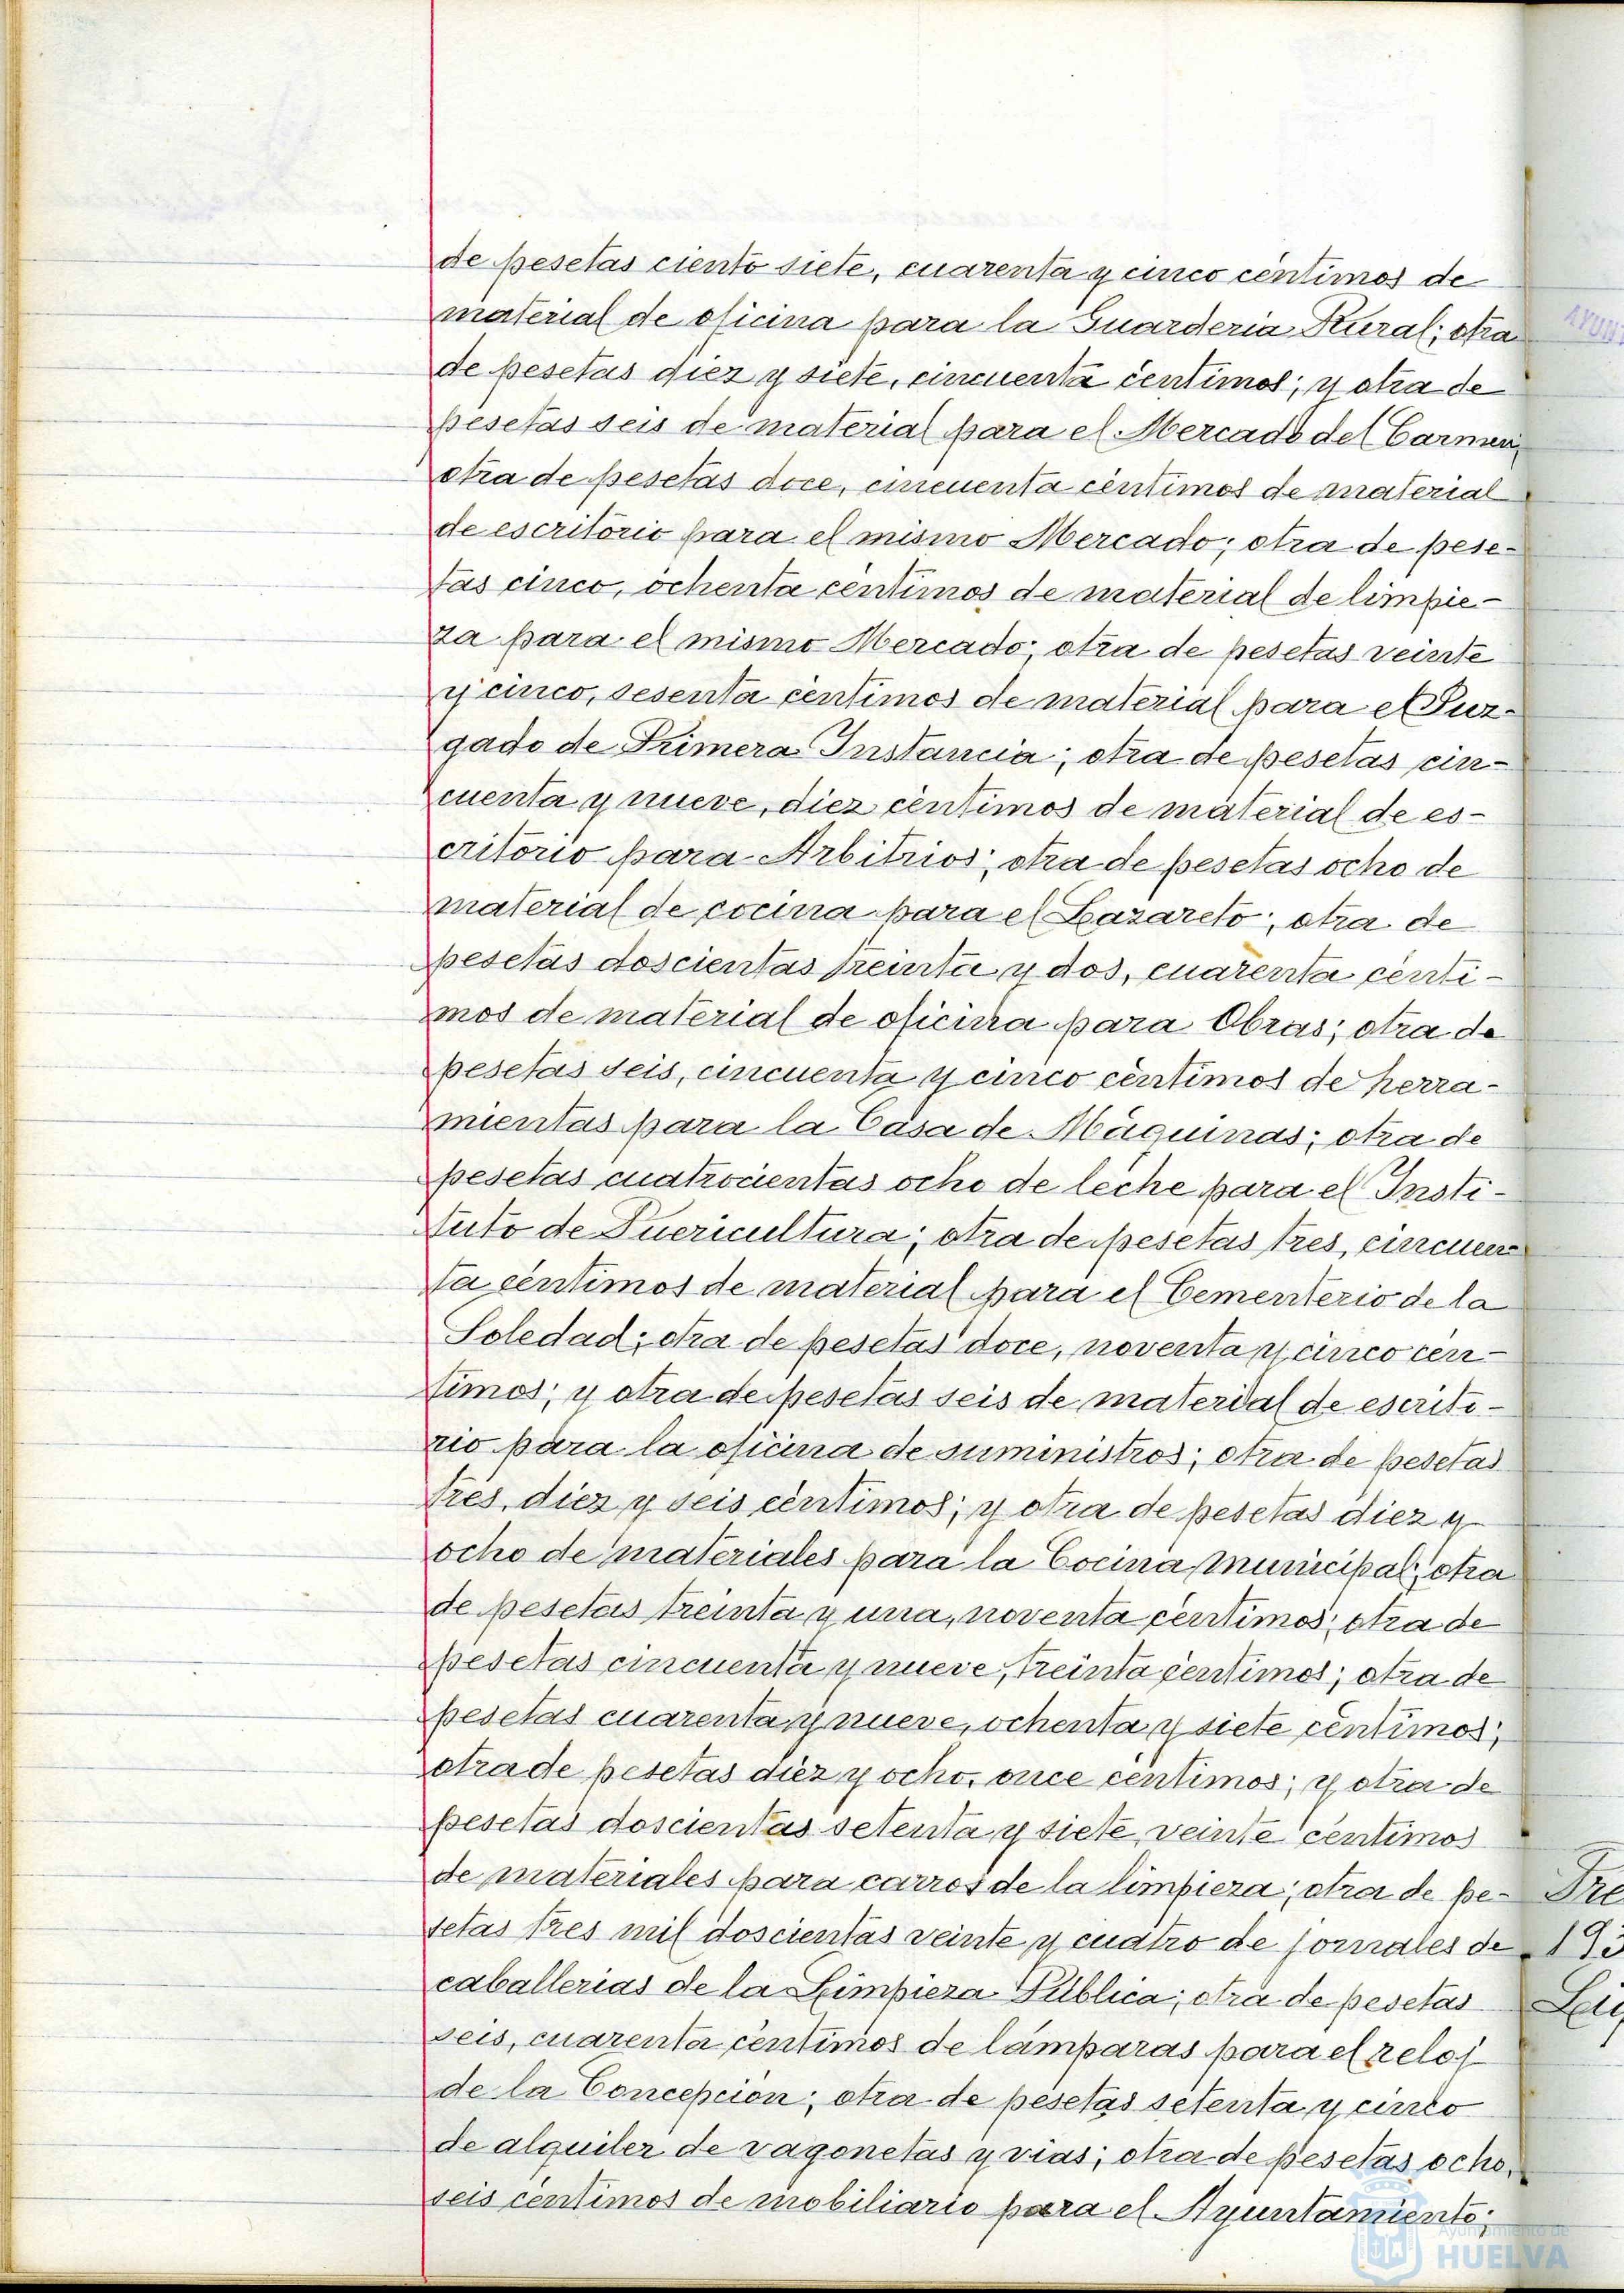 de pesetas ciento siete, cuarenta y cinco céntimos de
material de oficina para la Guarderia Rural; otra
de pesetas diez y siete, cincuenta centimos; y otra de
pesetas seis de material para el Mercado del Carmen,
otra de pesetas doce, cincuenta céntimos de material
de escritorio para el mismo Mercado; otra de pese-
tas cinco, ochenta céntimos de material de limpie-
za para el mismo Mercado; otra de pesetas veinte
y cinco, sesenta céntimos de material para el Juz-
gado de Primera Instancia; otra de pesetas cin-
cuenta y nueve, diez céntimos de material de es-
critorio para Arbitrios; otra de pesetas ocho de
material de cocina para el Lazareto; otra de
pesetas doscientas treinta y dos, cuarenta centi-
mos de material de oficina para Obras; otra de
pesetas seis, cincuenta y cinco céntimos de herra-
mientas para la Casa de Máquinas; otra de
pesetas cuatrocientas ocho de leche para el Insti-
tuto de Puericultura; otra de pesetas tres, cincuen
ta céntimos de material para el Cementerio de la
Soledad; otra de pesetas doce, noventa y cinco cén-
timos; y otra de pesetas seis de material de escrito-
rio para la oficina de suministros; otra de pesetas
tres, diez y seis céntimos; y otra de pesetas diez y
ocho de materiales para la Cocina Municipal; otra
de pesetas treinta y una, noventa céntimos; otra de
pesetas cincuenta y nueve, treinta céntimos; otra de
pesetas cuarenta y nueve, ochenta y siete céntimos;
otra de pesetas diez y ocho, once céntimos; y otra de
pesetas doscientas setenta y siete, veinte céntimos
de materiales para carros de la limpieza; otra de pe-
setas tres mil doscientas veinte y cuatro de jornales de
caballerias de la Limpieza Pública; otra de pesetas
seis, cuarenta céntimos de lámparas para el reloj
de la Concepción; otra de pesetas setenta y cinco
de alquiler de vagonetas y vias; otra de pesetas ocho,
seis céntimos de mobiliario para el Ayuntamiento;
Ayuntamiento de
HUELVA